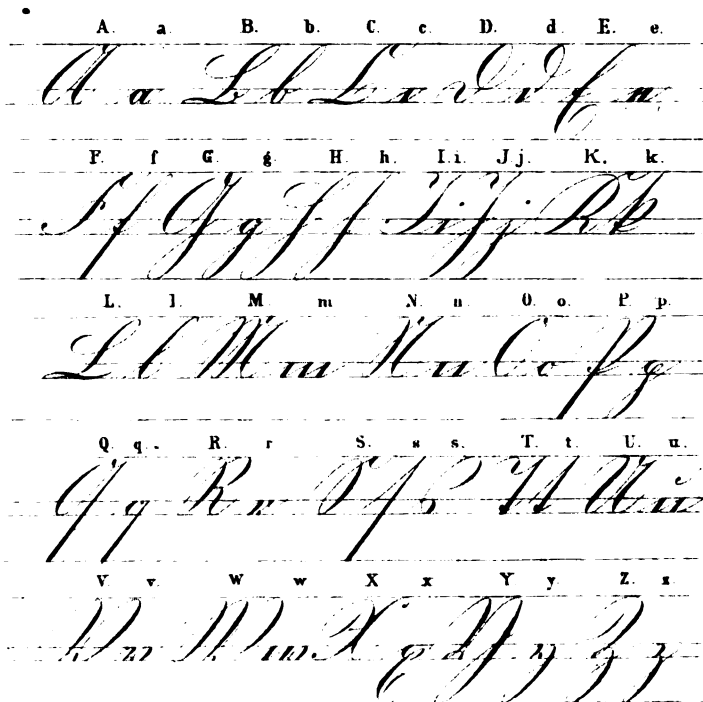 A. a. B. b. C. c. D. d. E. e.
A a B b C c D d E e
F. f G. g. H. h. I.i. J j. K. k.
F f G g H h I i J j K k
L. l. M m N. n O. o. P. p.
L l M m N n O o P p
Q. q. R. r S. s s. T. t. U. u.
Q q R r S ſ s T t U u
V. v. W w X x Y y. Z. z.
V v W w X x Y y Z z